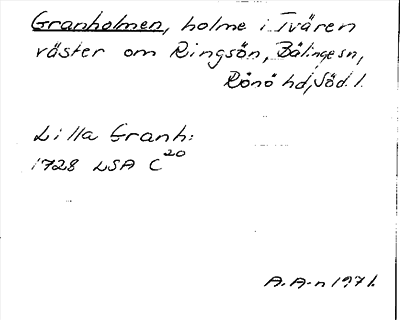 Granholmen, holme i Tvären
väster om Ringsön, Bälinge sn,
Rönö hd, Söd. l.
Lilla Granh:
1728 LSA C20
A. A-n 1971.